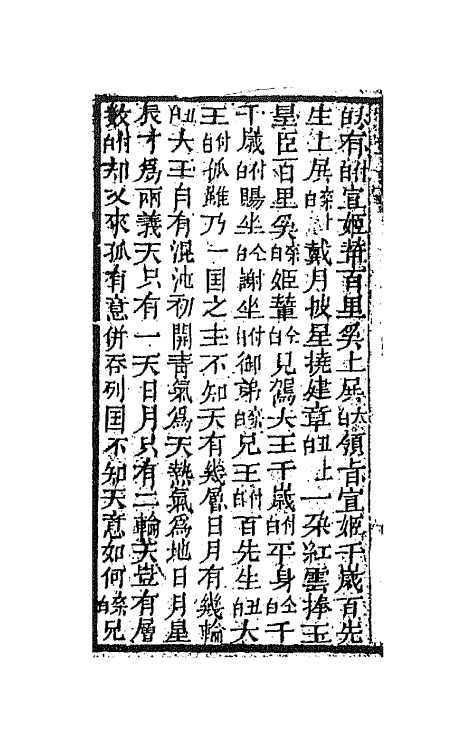 有付白宣姬輦百里奚上殿大白領旨宣姬千歲百先
生上殿衆白戴月披星撓建章丑白上一朶紅雲捧玉
皇臣百里奚衆白姬輦仝白見駕大王千歲付白平身仝白千
千歲付白賜坐仝白謝坐付白御弟衆白兄王付白百先生丑白大
王付白孤雖乃一国之主不知天有幾層日月有幾輪
丑白大王自有混沌初開青氣爲天熱氣爲地日月星
辰才爲兩義天只有一天日月只有二輪天豈有層
数付白却又來孤有意併吞列国不知天意如何衆白兄